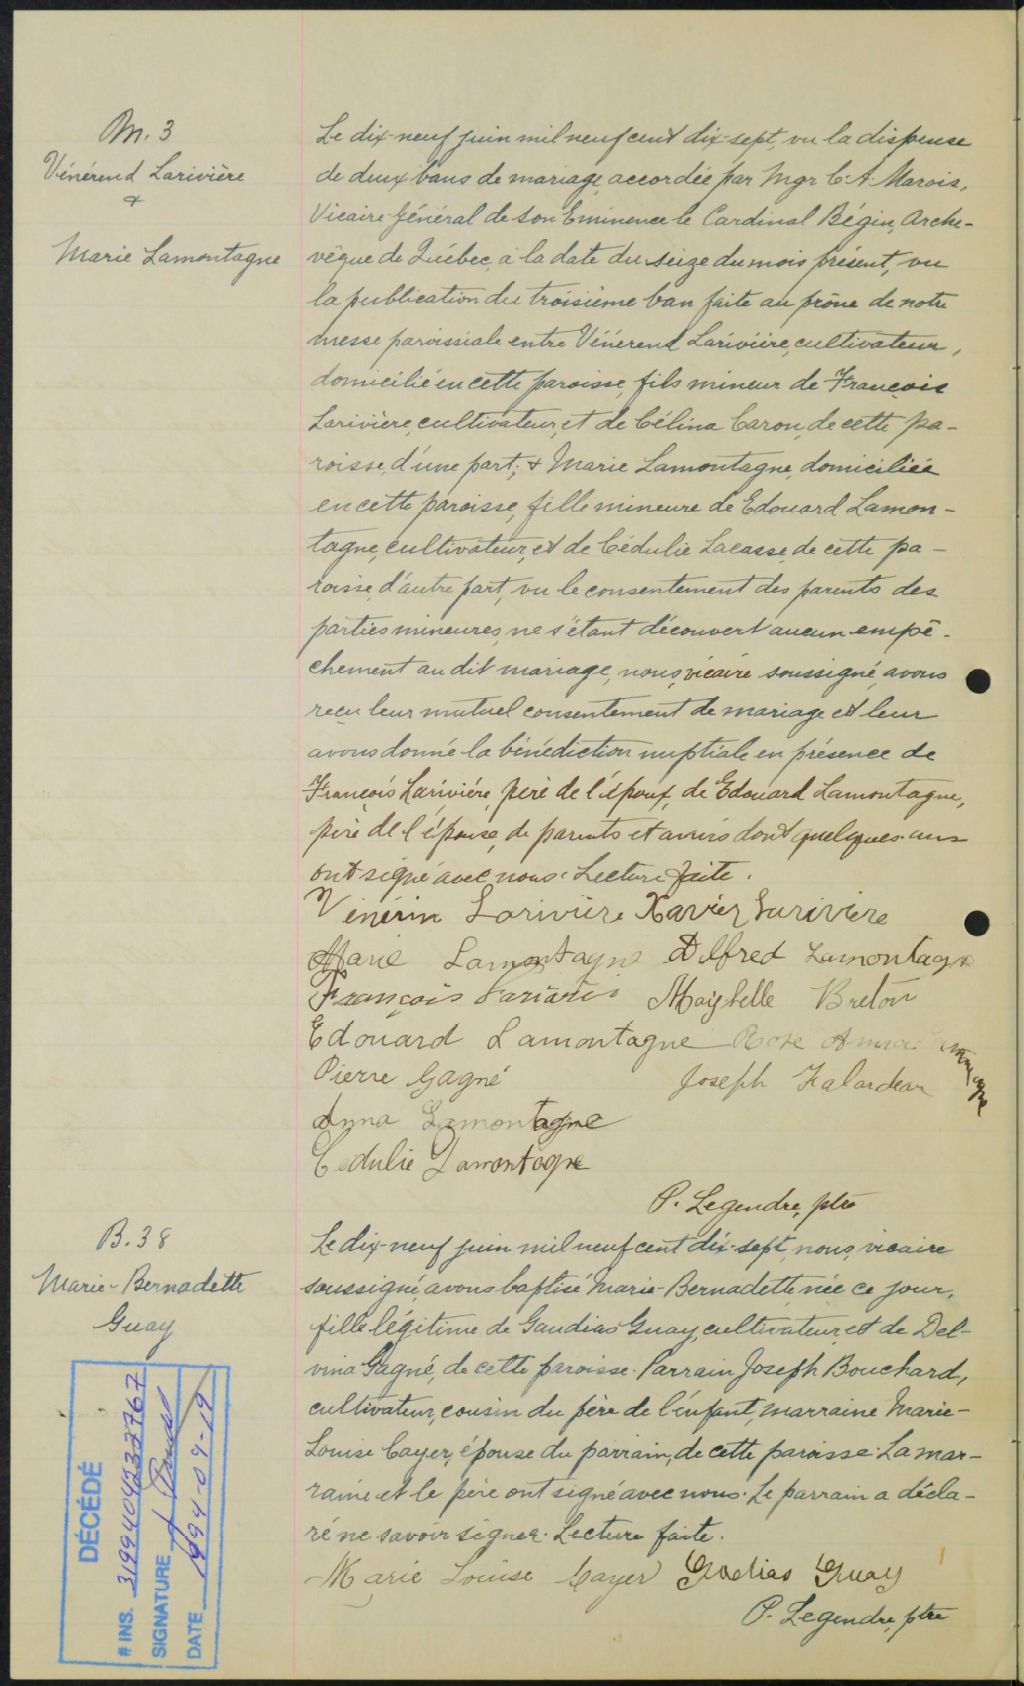 M. 3
Vénérend Larivière
&
Marie Lamontagne
Le dix-neuf juin mil neuf cent dix-sept, vu la dispense
de deux bans de mariage accordée par Mgr C.-A. Marois,
Vicaire-Général de Son Eminence le Cardinal Bégin, Arche-
vêque de Québec, à la date du seize du mois présent, vu
la publication du troisième ban faite au prône de notre
messe paroissiale entre Vénérend Larivière, cultivateur,
domicilié en cette paroisse, fils mineur de François
Larivière, cultivateur, et de Célina Caron, de cette pa-
roisse, d'une part; & Marie Lamontagne, domiciliée
en cette paroisse, fille mineure de Edouard Lamon-
tagne, cultivateur, et de Cédulie Lacasse, de cette pa-
roisse, d'autre part, vu le consentement des parents des
parties mineures, ne s'étant découvert aucun empê-
chement au dit mariage, nous, vicaire soussigné, avons
reçu leur mutuel consentement de mariage et leur
avons donné la bénédiction nuptiale en présence de
François Larivière, père de l'époux, de Edouard Lamontagne,
père de l'épouse, de parents et amis dont quelques-uns
ont signé avec nous. Lecture faite.
Vénérin Larivière Xavier Larivière
Marie Lamontagne Alfred Lamontagne
François Maybelle Breton
Edouard Lamontagne Rose Anna
Pierre Gagné Joseph Falardeau
Anna Lamontagne
Cédulie Lamontagne
P. Legendre, ptre
B. 38
Marie-Bernadette
Guay
Le dix-neuf juin mil neuf cent dix-sept, nous, vicaire
soussigné, avons baptisé Marie-Bernadette, née ce jour,
fille légitime de Gaudias Guay, cultivateur, et de Del-
vina Gagné, de cette paroisse. Parrain Joseph Bouchard,
cultivateur, cousin du père de l'enfant, marraine Marie-
Louise Cayer, épouse du parrain, de cette paroisse. La mar-
raine et le père ont signé avec nous. Le parrain a décla-
ré ne savoir signer. Lecture faite.
Marie Louise Cayer Guadias Guay
P. Legendre, ptre
DÉCÉDÉ
# INS. 3199404232767
SIGNATURE
DATE 1994-09-19